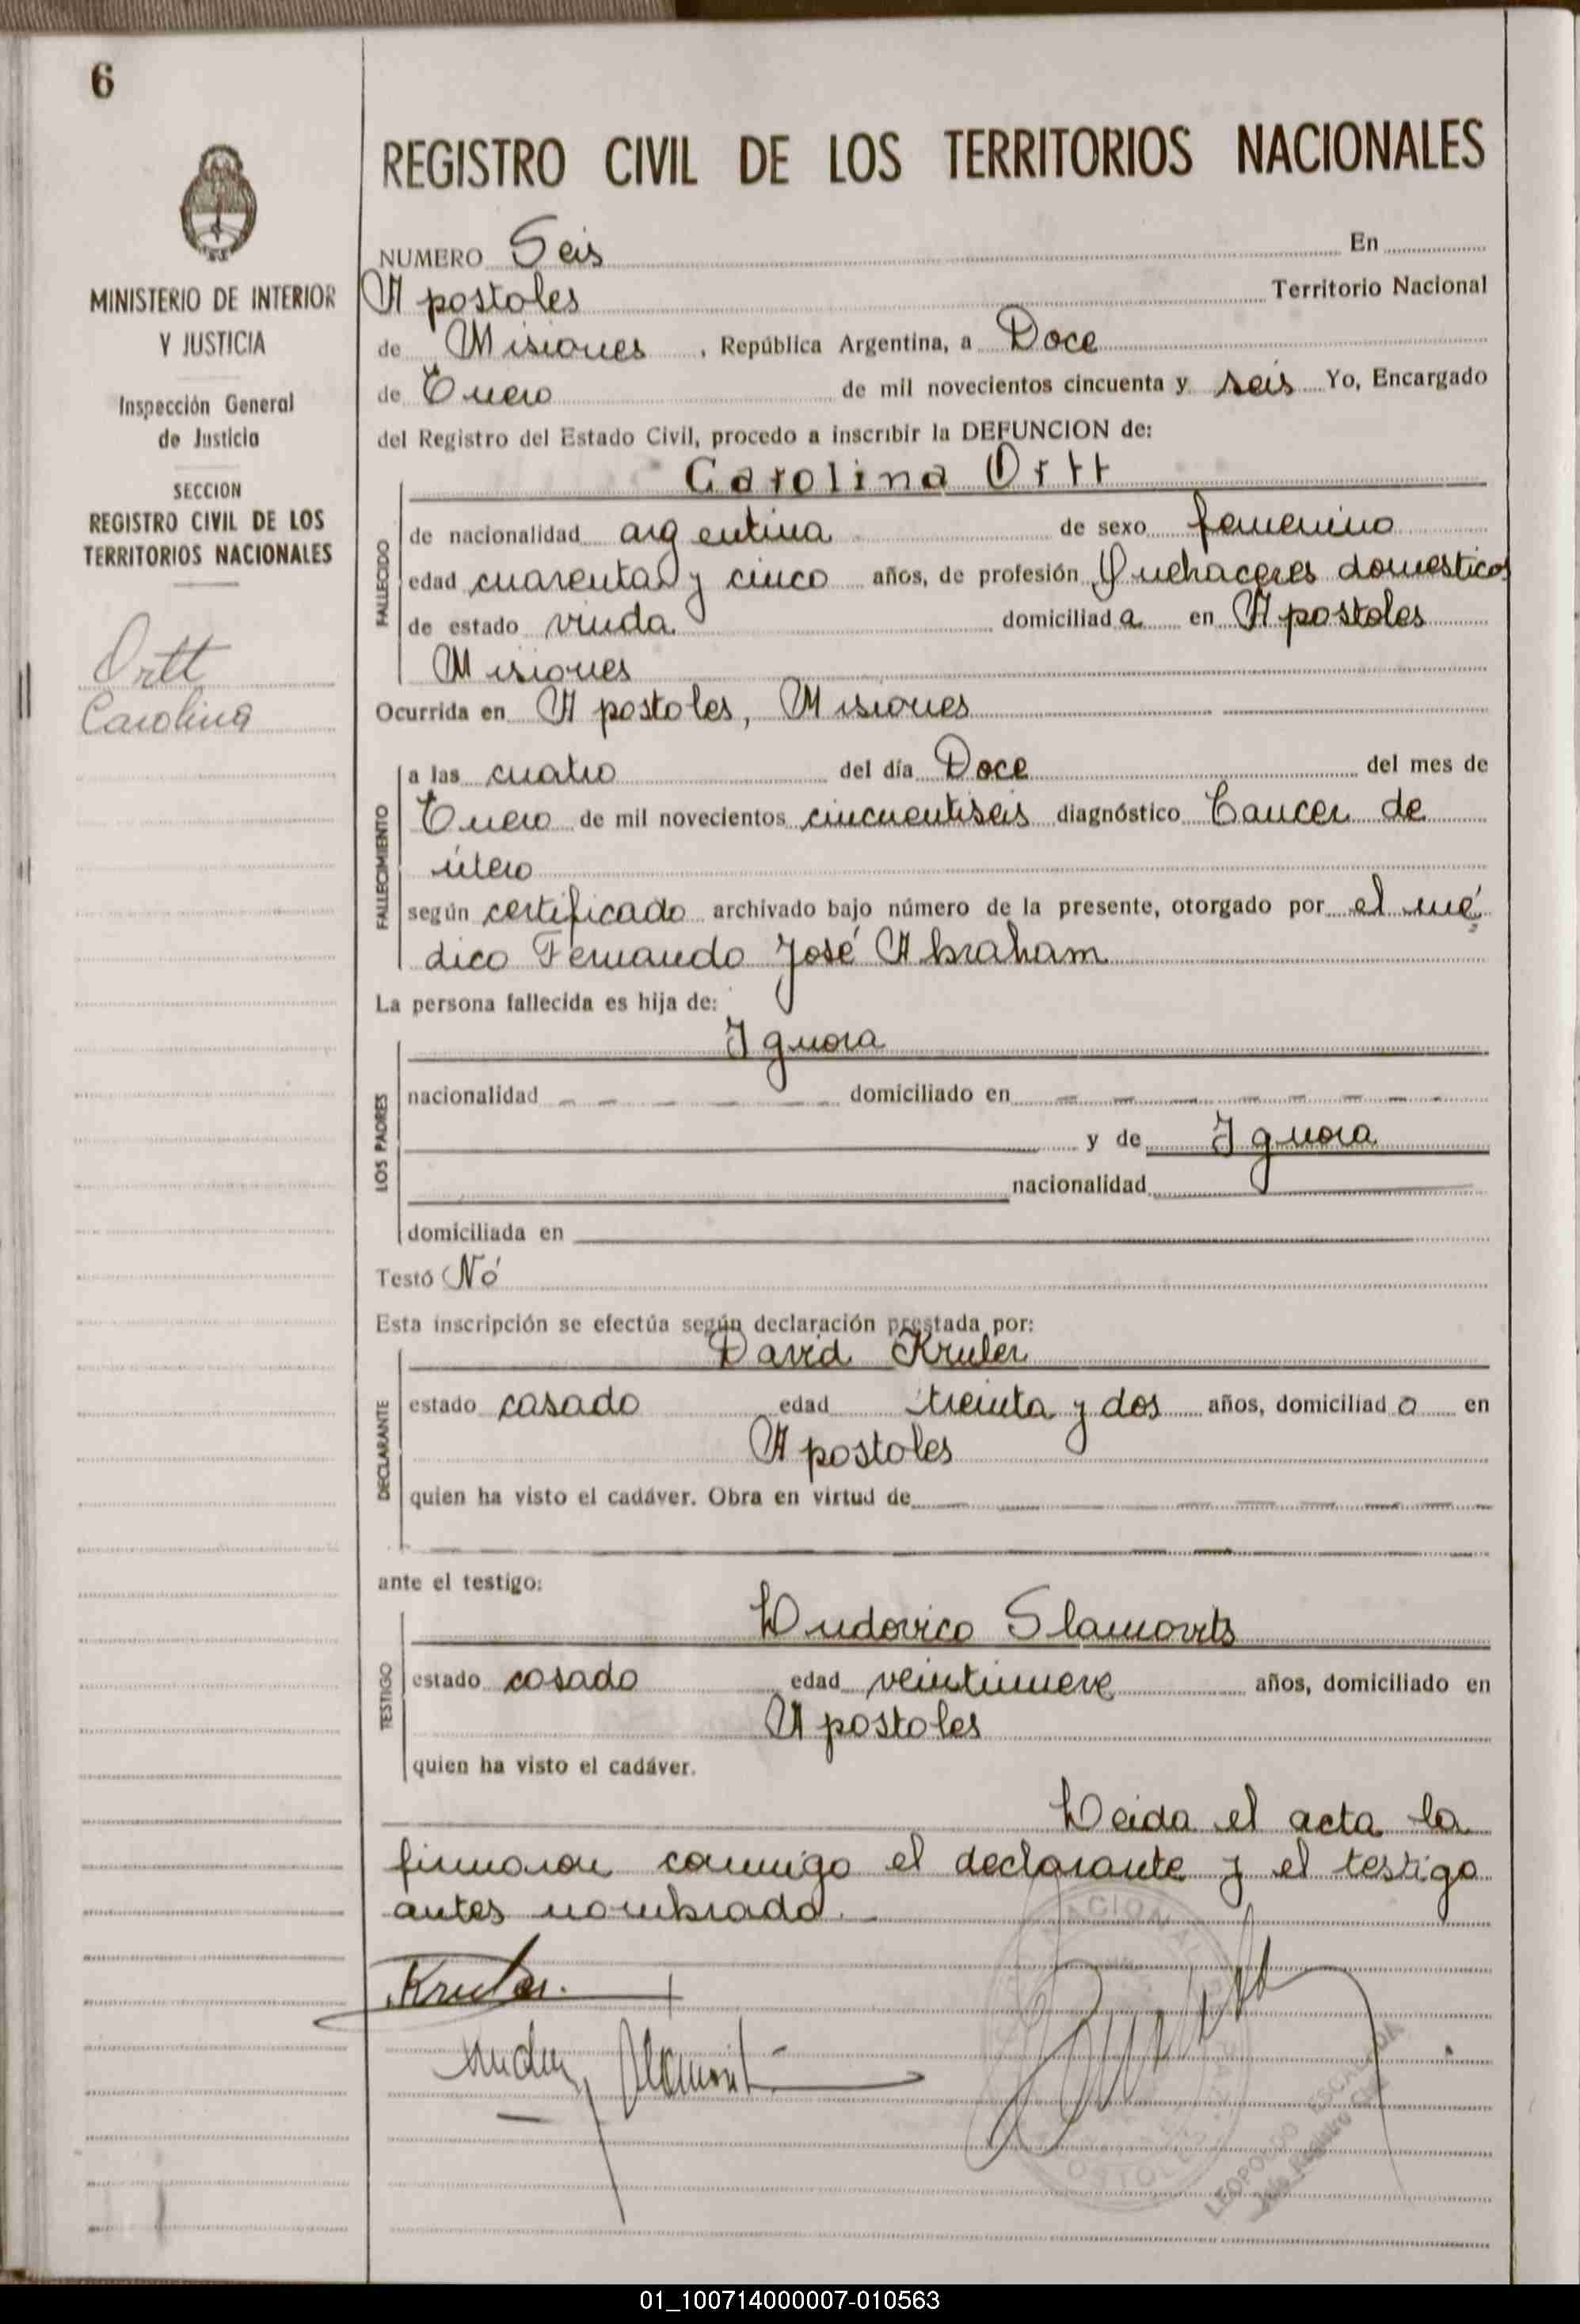 6
REGISTRO CIVIL DE LOS TERRITORIOS NACIONALES
MINISTERIO DE INTERIOR
Y JUSTICIA
Inspección General
de Justicia
SECCION
REGISTRO CIVIL DE LOS
TERRITORIOS NACIONALES
Ortt
Carolina
NUMERO Seis En
Apostoles Territorio Nacional
de Misiones, República Argentina, a Doce
de Enero de mil novecientos cincuenta y seis Yo, Encargado
del Registro del Estado Civil, procedo a inscribir la DEFUNCION de:
Carolina Ortt
FALLECIDO
de nacionalidad argentina de sexo femenino
edad cuarenta y cinco años, de profesión Quehaceres domesticos
de estado viuda domiciliada en Apostoles
Misiones
Ocurrida en Apostoles, Misiones
FALLECIMIENTO
a las cuatro del día Doce del mes de
Enero de mil novecientos cincuentiseis diagnóstico Cancer de
útero
según certificado archivado bajo número de la presente, otorgado por el mé
dico Fernando José Abraham
La persona fallecida es hija de:
LOS PADRES
Ignora
nacionalidad domiciliado en
y de Ignora
nacionalidad
domiciliada en
Testó Nó
Esta inscripción se efectúa según declaración prestada por:
David Kruler
DECLARANTE
estado casado edad treinta y dos años, domiciliado en
Apostoles
quien ha visto el cadáver. Obra en virtud de
ante el testigo:
Ludovico Slamovits
TESTIGO
estado casado edad veintinueve años, domiciliado en
Apostoles
quien ha visto el cadáver.
Leida el acta la
firmaron conmigo el declarante y el testigo
antes nombrado.
Kruler.
LEOPOLDO ESCALADA
Jefe Registro Civil
01_100714000007-010563